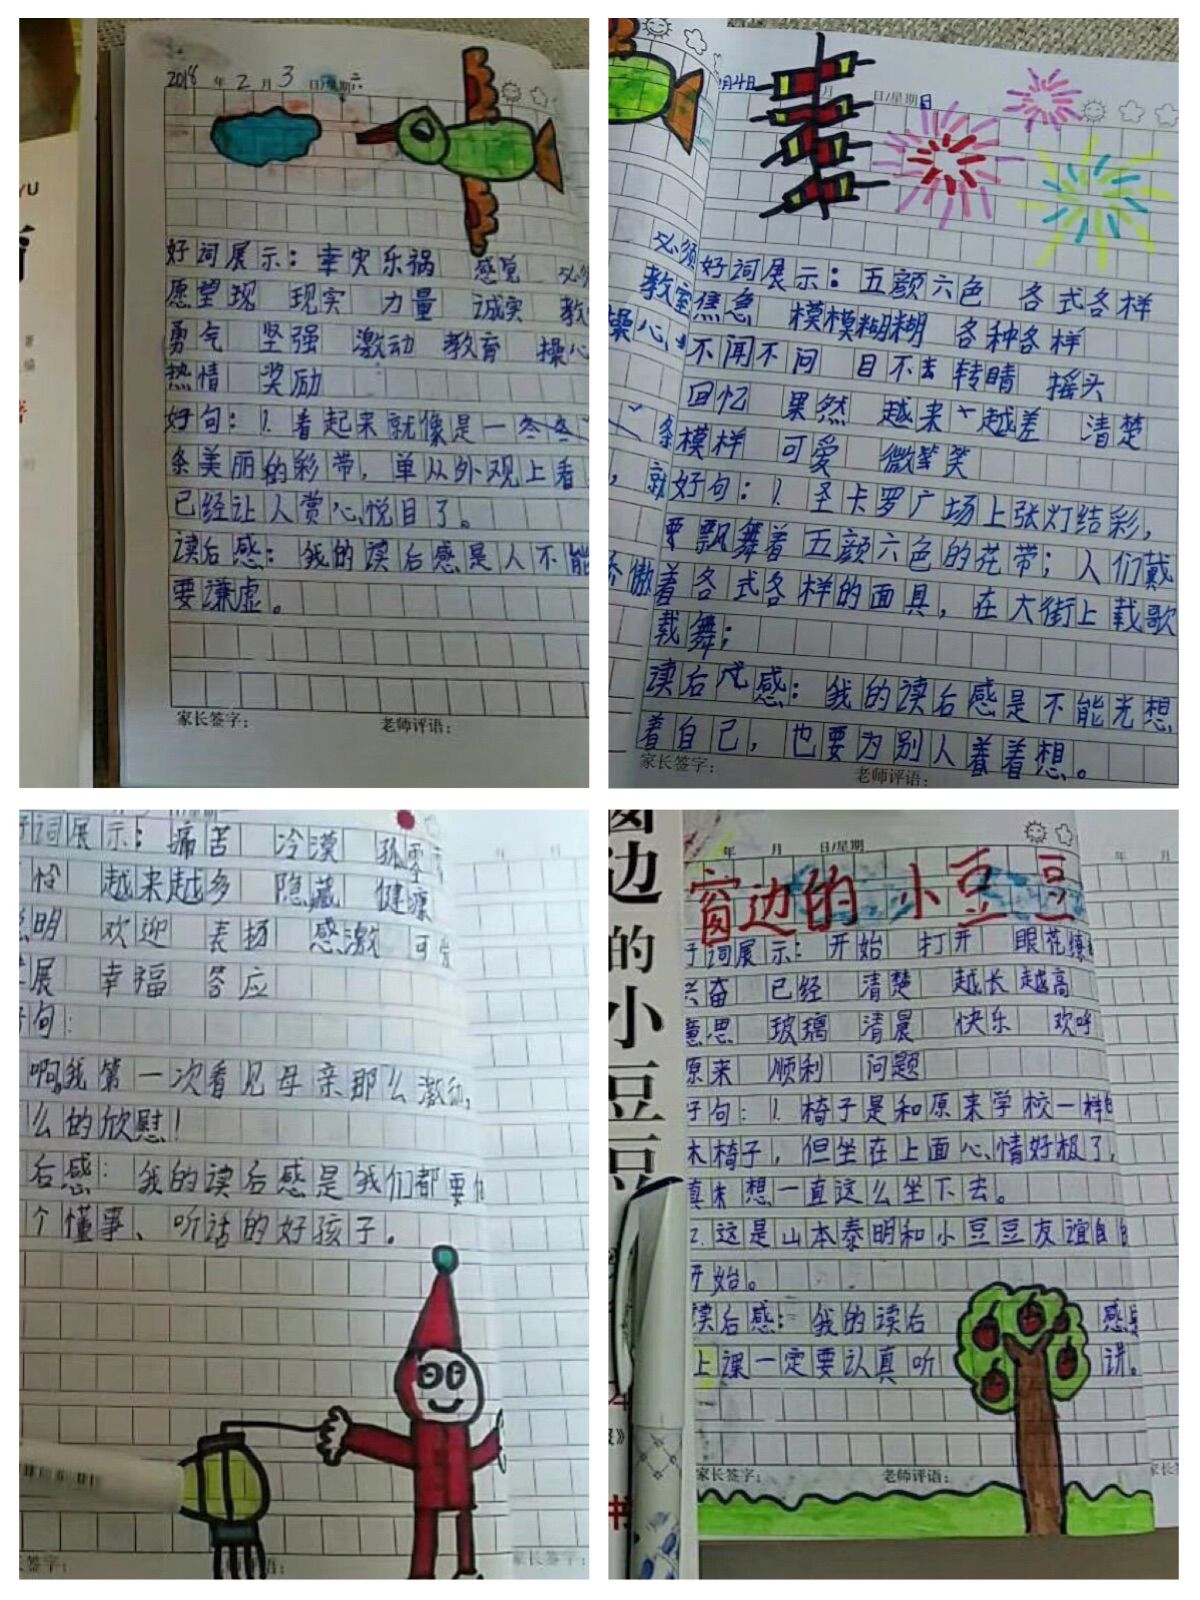 2018年2月3日/星期六
好词展示：幸灾乐祸 感觉 必须
愿望现 现实 力量 诚实 教
勇气 坚强 激动 教育 操心
热情 奖励
好句：1.看起来就像是一
条美丽的彩带，单从外观上看
已经让人赏心悦目了。
读后感：我的读后感是人不能
要谦虚。
家长签字： 老师评语：
月4日 月 日/星期日
必须
教室
操心
好词展示：五颜六色 各式各样
焦急 模模糊糊 各种各样
不闻不问 目不转睛 摇头
回忆 果然 越来越差 清楚
模样 可爱 微笑
好句：1.圣卡罗广场上张灯结彩，
飘舞着五颜六色的花带；人们戴
着各式各样的面具，在大街上载歌
载舞；
读后感：我的读后感是不能光想
着自己，也要为别人着着想。
家长签字： 老师评语：
词展示：痛苦 冷漠 孤零
怜 越来越多 隐藏 健康
明 欢迎 表扬 感激 可
展 幸福 答应
句：
啊，我第一次看见母亲那么激动，
么的欣慰！
后感：我的读后感是我们都要
个懂事、听话的好孩子。
签字： 评语： 家长签字：
边的小豆豆
年 月 日/星期
窗边的小豆豆
词展示：开始 打开 眼花缭
兴奋 已经 清楚 越长越高
意思 玻璃 清晨 快乐 欢呼
原来 顺利 问题
好句：1.椅子是和原来学校一样
木椅子，但坐在上面心情好极了，
真想一直这么坐下去。
2.这是山本泰明和小豆豆友谊
开始。
读后感：我的读后感
上课一定要认真听讲。
家长签字： 老师评语：